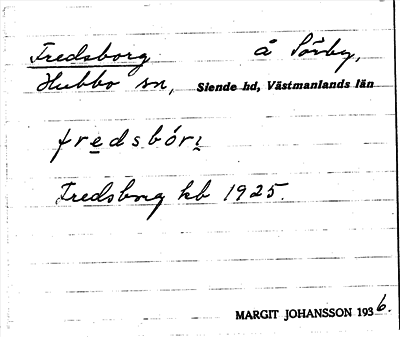 Fredsborg å Sörby,
Hubbo sn, Siende hd, Västmanlands län
fredsbórị
Fredsborg kb 1925.
MARGIT JOHANSSON 1936.